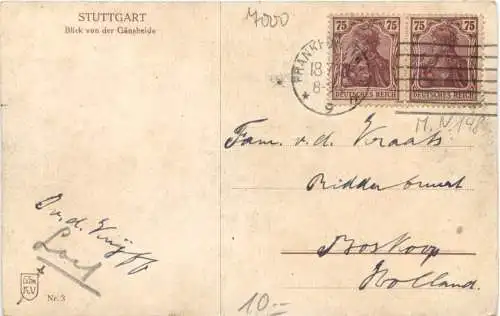 STUTTGART
Blick von der Gänsheide
7000
75 75 75 75
DEUTSCHES REICH DEUTSCHES REICH
FRANKF
18
8-
9
M.N
Fam. v. d. Kraats
Ridderbuurt
Boskoop
Holland.
D. v. d.
10.-
Nr. 3